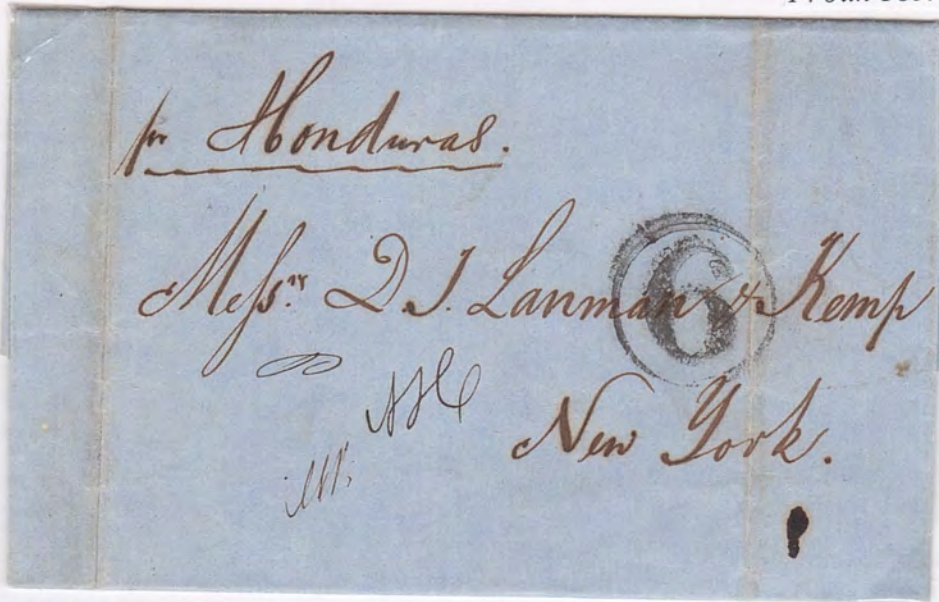 pr Honduras.
Messrs. D. J. Lanman & Kemp
6
New York.